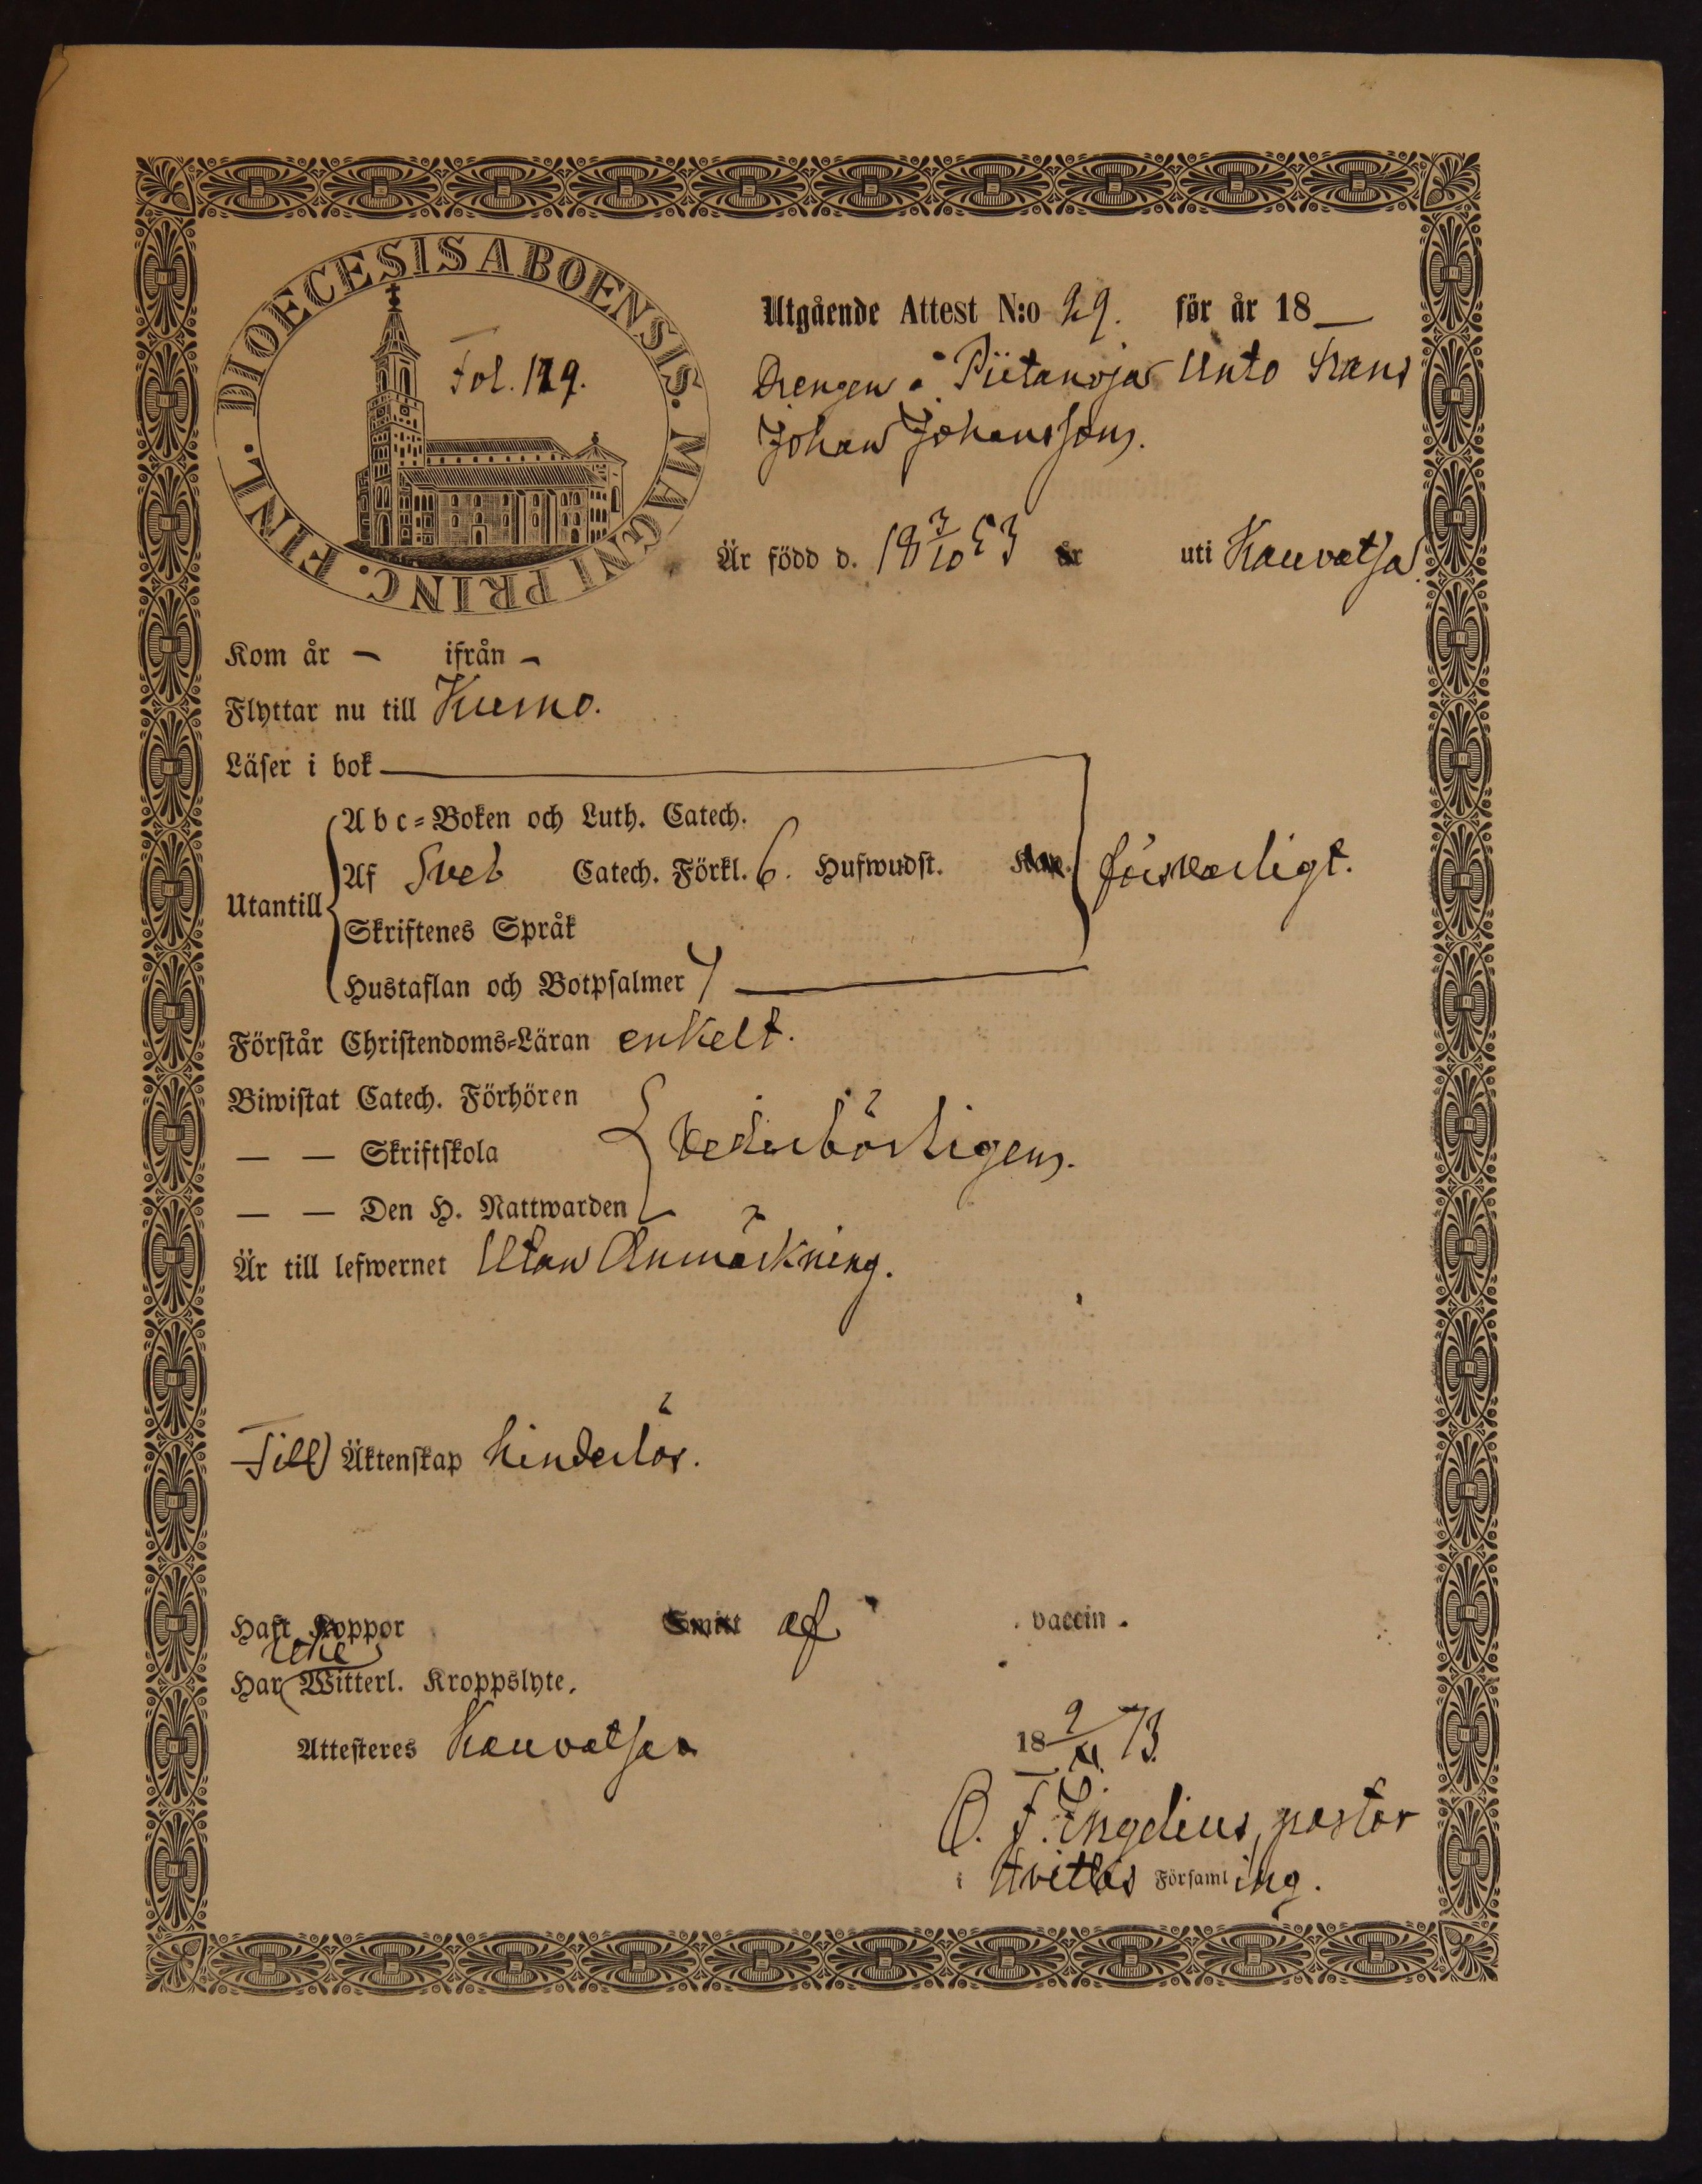 DIOECESIS ABOENSIS. MAGNI PRINC. FINL.
Fol. 129.
Utgående Attest N:o 29. för år 18
Drengen å Piitanoja Unto Frans
Johan Johansson.
Är född d. 18 3/10 53 år uti Kauvatsa
Kom år — ifrån —
Flyttar nu till Kumo.
Läser i bok
Utantill
Abc=Boken och Luth. Catech.
Af Sveb Catech. Förkl. 6. Hufwudst. Kap.
försvarligt.
Skriftenes Språk
Hustaflan och Botpsalmer 7
Förstår Christendoms-Läran enkelt.
Biwistat Catech. Förhören
— — Skriftskola vederbörligen.
— — Den H. Nattwarden
Är till lefwernet Utan Anmärkning.
Till Äktenskap hinderlös.
Haft Koppor Smitt af vaccin.
icke
Har Witterl. Kroppslyte.
Attesteres Kauvatsa 18 9/XI. 73.
O. F. Ingelius, pastor
i Hvittis Församling.